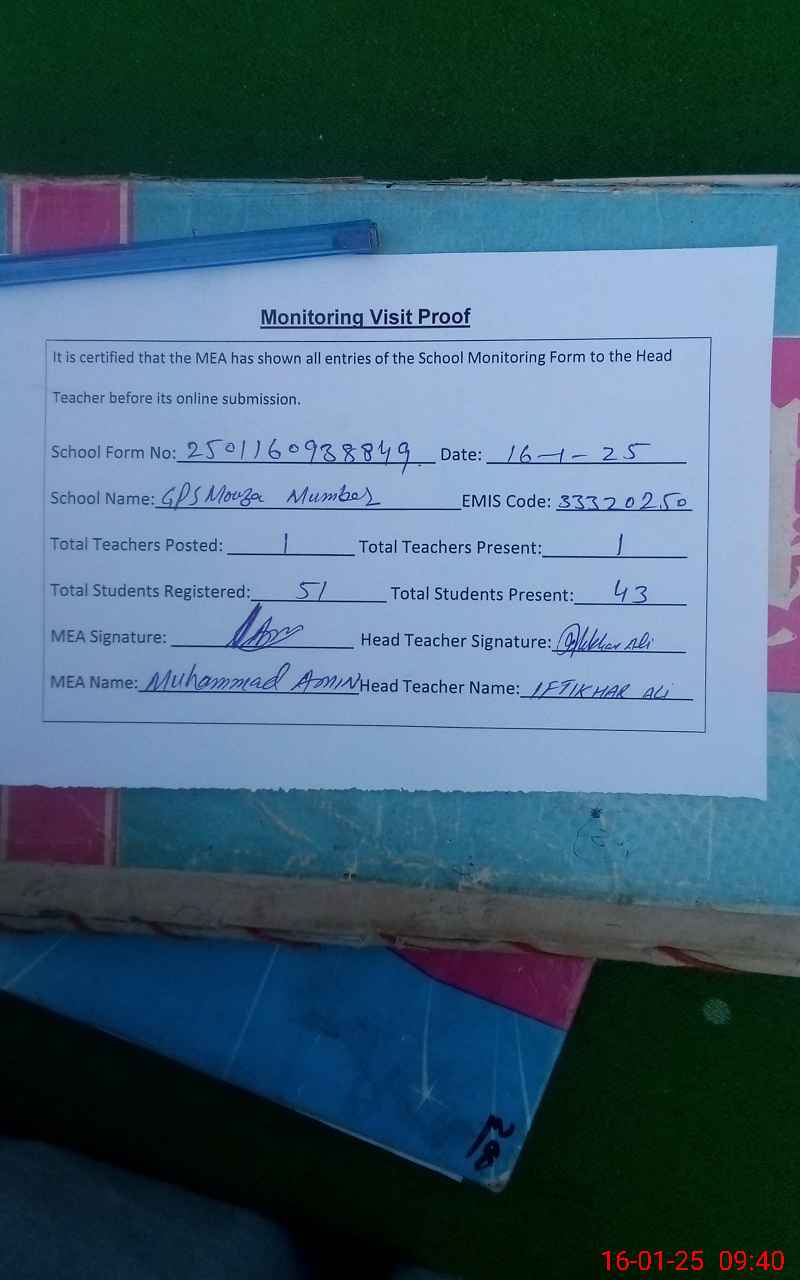 Monitoring Visit Proof
It is certified that the MEA has shown all entries of the School Monitoring Form to the Head
Teacher before its online submission.
School Form No: 2501160938849 Date: 16-1-25
School Name: GPS Mouza Mumber EMIS Code: 33320250
Total Teachers Posted: 1 Total Teachers Present: 1
Total Students Registered: 51 Total Students Present: 43
MEA Signature: Head Teacher Signature: Iftikhar Ali
MEA Name: Muhammad Amin Head Teacher Name: IFTIKHAR ALi
16-01-25 09:40